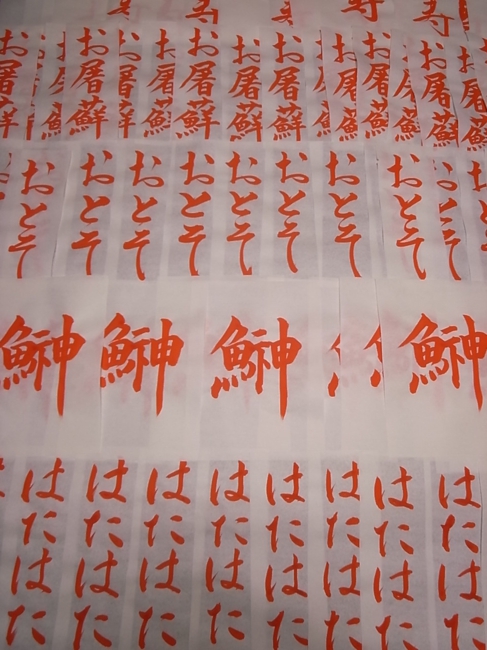 寿
寿
寿
お屠蘇
お屠蘇
お屠蘇
お屠蘇
お屠蘇
お屠蘇
お屠蘇
おとそ
おとそ
おとそ
おとそ
おとそ
おとそ
おとそ
おとそ
鰰
鰰
鰰
鰰
はたはた
はたはた
はたはた
はたはた
はたはた
はたはた
はたはた
はたはた